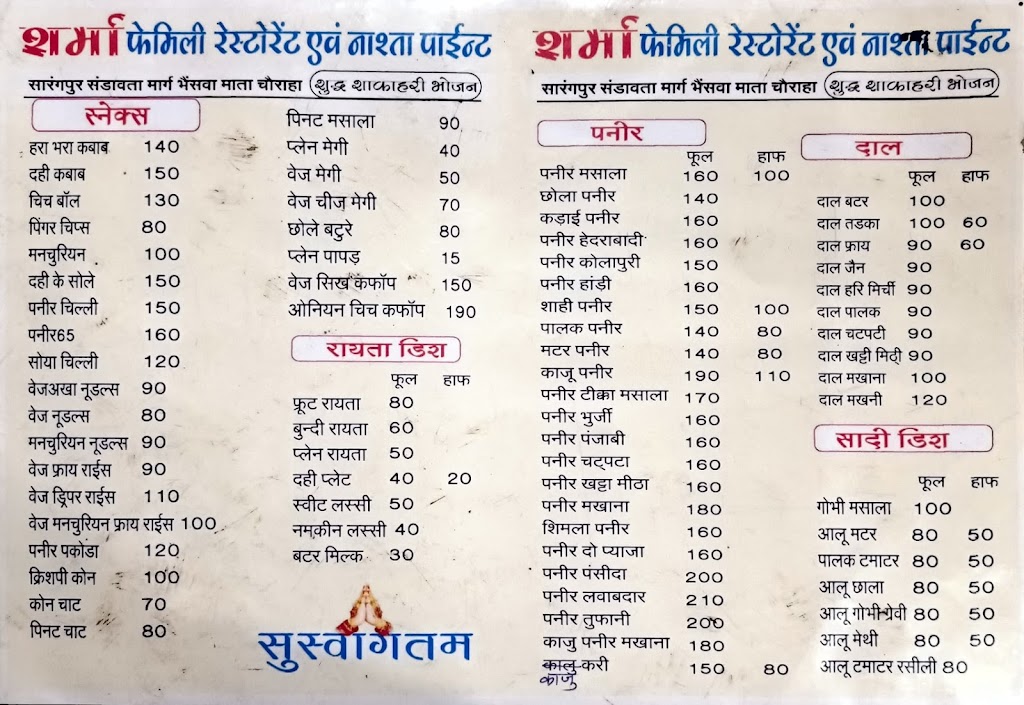 शर्मा फेमिली रेस्टोरेंट एवं नाश्ता पाईन्ट
सारंगपुर संडावता मार्ग भैंसवा माता चौराहा शुद्ध शाकाहरी भोजन
स्नेक्स
हरा भरा कबाब 140
दही कबाब 150
चिच बॉल 130
पिंगर चिप्स 80
मनचुरियन 100
दही के सोले 150
पनीर चिल्ली 150
पनीर65 160
सोया चिल्ली 120
वेजअखा नूडल्स 90
वेज नूडल्स 80
मनचुरियन नूडल्स 90
वेज फ्राय राईस 90
वेज ड्रिपर राईस 110
वेज मनचुरियन फ्राय राईस 100
पनीर पकोडा 120
क्रिशपी कोन 100
कोन चाट 70
पिनट चाट 80
पिनट मसाला 90
प्लेन मेगी 40
वेज मेगी 50
वेज चीज मेगी 70
छोले बटुरे 80
प्लेन पापड़ 15
वेज सिख कफॉप 150
ओनियन चिच कफॉप 190
रायता डिश
फूल हाफ
फ्रूट रायता 80
बुन्दी रायता 60
प्लेन रायता 50
दही प्लेट 40 20
स्वीट लस्सी 50
नमकीन लस्सी 40
बटर मिल्क 30
सुस्वागतम
शर्मा फेमिली रेस्टोरेंट एवं नाश्ता पाईन्ट
सारंगपुर संडावता मार्ग भैंसवा माता चौराहा शुद्ध शाकाहरी भोजन
पनीर
फूल हाफ
पनीर मसाला 160 100
छोला पनीर 140
कड़ाई पनीर 160
पनीर हेदराबादी 160
पनीर कोलापुरी 150
पनीर हांड़ी 160
शाही पनीर 150 100
पालक पनीर 140 80
मटर पनीर 140 80
काजू पनीर 190 110
पनीर टीक्का मसाला 170
पनीर भुर्जी 160
पनीर पंजाबी 160
पनीर चट्पटा 160
पनीर खट्टा मीठा 160
पनीर मखाना 180
शिमला पनीर 160
पनीर दो प्याजा 160
पनीर पंसीदा 200
पनीर लवाबदार 210
पनीर तुफानी 200
काजु पनीर मखाना 180
कालु करी 150 80
काजु
दाल
फूल हाफ
दाल बटर 100
दाल तडका 100 60
दाल फ्राय 90 60
दाल जैन 90
दाल हरि मिर्ची 90
दाल पालक 90
दाल चटपटी 90
दाल खट्टी मिठ्ठी 90
दाल मखाना 100
दाल मखनी 120
सादी डिश
फूल हाफ
गोभी मसाला 100
आलू मटर 80 50
पालक टमाटर 80 50
आलू छाला 80 50
आलू गोभी ग्रेवी 80 50
आलू मेथी 80 50
आलू टमाटर रसीली 80